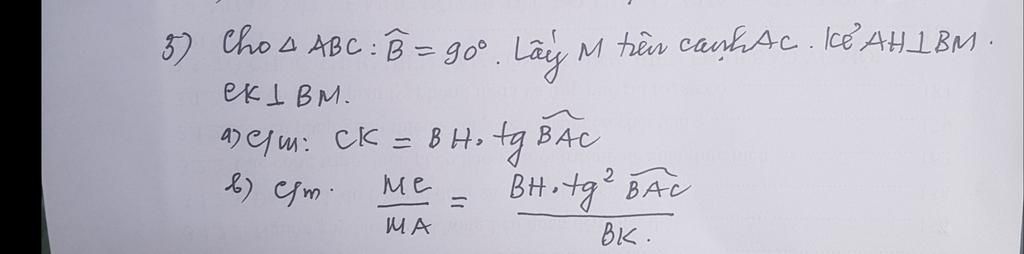 5) Cho △ ABC : B̂ = 90°. Lấy M trên cạnh AC. Kẻ AH⊥BM.
CK⊥ BM.
a) c/m: CK = BH. tg \widehat{BAC}
b) c/m. \frac{MC}{MA} = \frac{BH.tg² \widehat{BAC}}{BK.}